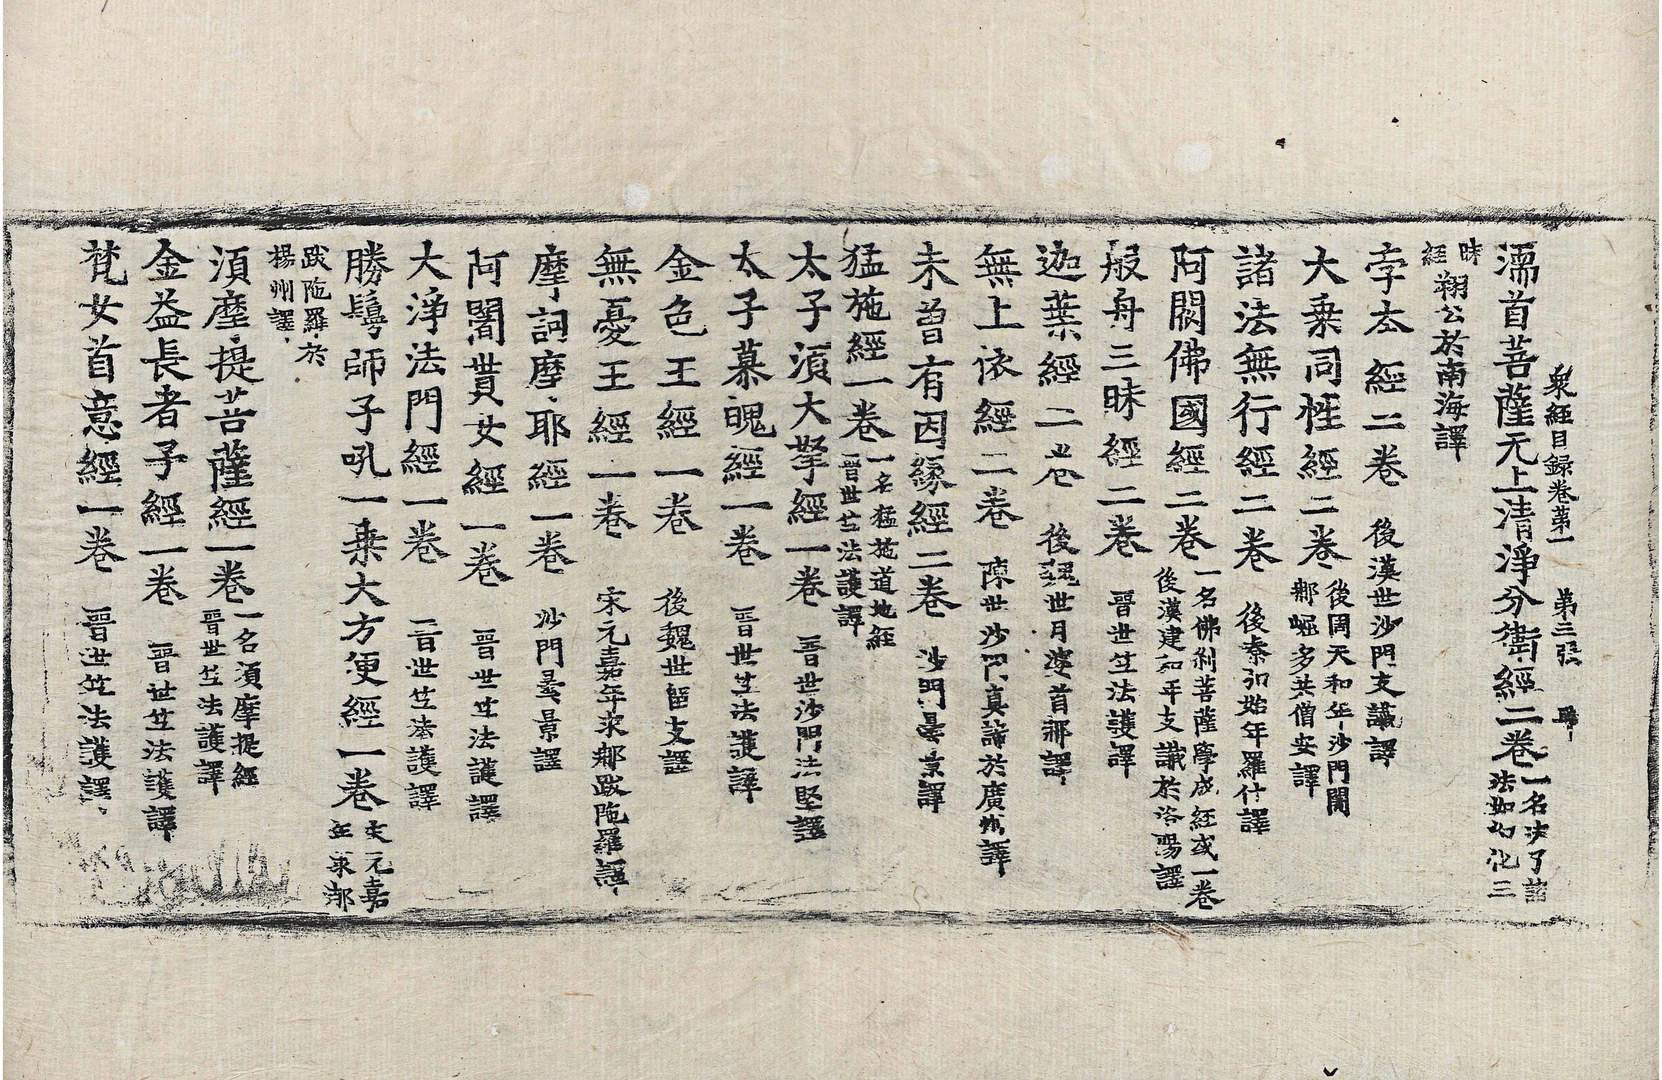 衆經目録卷第一 第三張
濡首菩薩无上清淨分衛經二卷 一名決了諸法如幻化三
昧經 翔公於南海譯
孛太 經二卷 後漢世沙門支讖譯
大乗同性經二卷 後周天和年沙門闍那崛多共僧安譯
諸法無行經二卷 後秦弘始年羅什譯
阿閦佛國經二卷 一名佛剎菩薩學成經或一卷後漢建和年支讖於洛陽譯
般舟三昧經二卷 晉世竺法護譯
迦葉經二卷 後魏世月婆首那譯
無上依經二卷 陳世沙門真諦於廣州譯
未曾有因緣經二卷 沙門曇景譯
猛施經一卷 一名猛施道地經晉世竺法護譯
太子須大拏經一卷 晉世沙門法堅譯
太子慕魄經一卷 晉世竺法護譯
金色王經一卷 後魏世留支譯
無憂王經一卷 宋元嘉年求那跋陁羅譯
摩訶摩耶經一卷 沙門曇景譯
阿闍貰女經一卷 晉世竺法護譯
大淨法門經一卷 晉世竺法護譯
勝鬘師子吼一乗大方便經一卷 宋元嘉年求那
跋陁羅於楊州譯
須摩提菩薩經一卷 一名須摩提經晉世竺法護譯
金益長者子經一卷 晉世竺法護譯
梵女首意經一卷 晉世竺法護譯